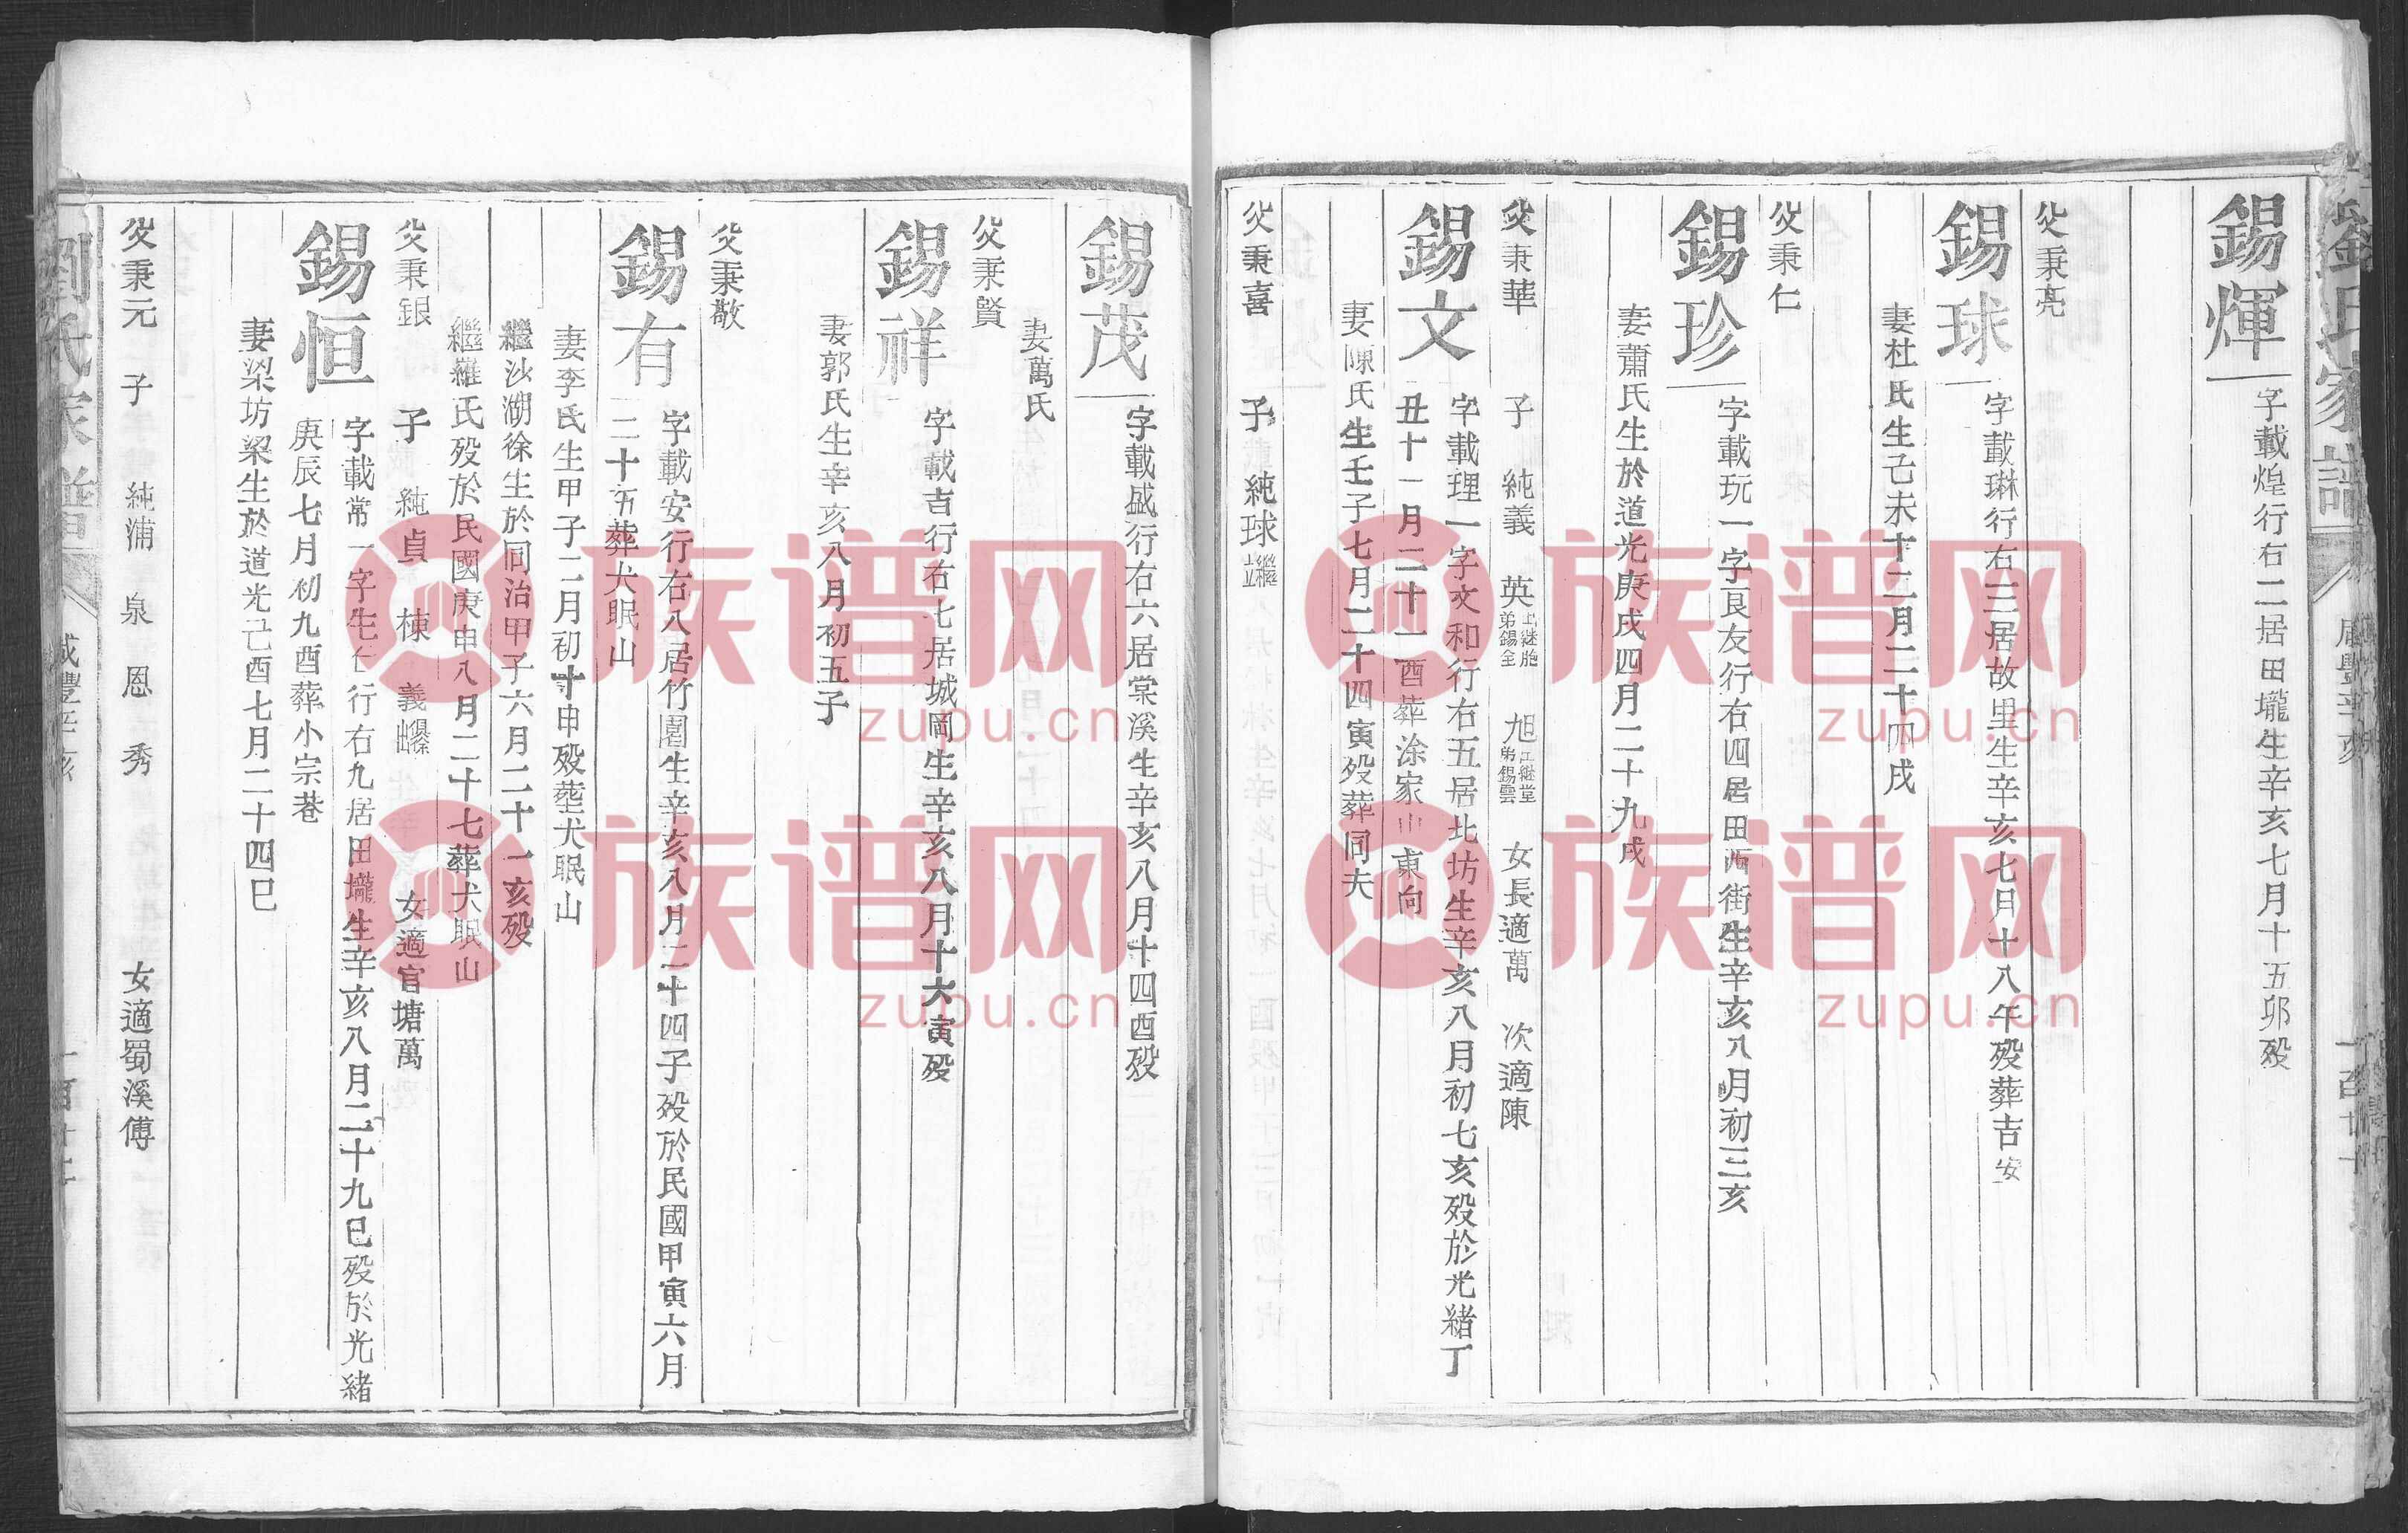 劉氏家譜
咸豐辛亥
錫煇
字載煌行右二居田壠生辛亥七月十五卯殁
父秉亮
錫球
字載琳行右三居故里生辛亥七月十八午殁葬吉安
妻杜氏生己未十二月二十四戌
父秉仁
錫珍
字載玩一字良友行右四居田西街生辛亥八月初三亥
妻蕭氏生於道光庚戌四月二十九戌
父秉華 子 純義 英 出繼胞弟錫全 旭 出繼堂弟錫雲 女長適萬 次適陳
錫文
字載理一字文和行右五居北坊生辛亥八月初七亥殁於光緒丁
丑十一月二十一酉葬涂家山東向
妻陳氏生壬子七月二十四寅殁葬同夫
父秉喜 子 純球
錫茂
字載盛行右六居棠溪生辛亥八月十四酉殁
妻萬氏
父秉賢
錫祥
字載吉行右七居城岡生辛亥八月十六寅殁
妻郭氏生辛亥八月初五子
父秉敬
錫有
字載安行右八居竹園生辛亥八月二十四子殁於民國甲寅六月
二十五葬犬眠山
妻李氏生甲子二月初十申殁葬犬眠山
繼沙湖徐生於同治甲子六月二十一亥殁
繼羅氏殁於民國庚申八月二十七葬犬眠山
父秉銀 子 純貞 棟 義 女適官塘萬
錫恒
字載常一字生仁行右九居田壠生辛亥八月二十九巳殁於光緒
庚辰七月初九酉葬小宗巷
妻梁坊梁生於道光己酉七月二十四巳
父秉元 子 純浦 泉 恩 秀 女適蜀溪傅
劉氏家譜
咸豐辛亥
族谱网
zupu.cn
族谱网
zupu.cn
族谱网
zupu.cn
族谱网
zupu.cn